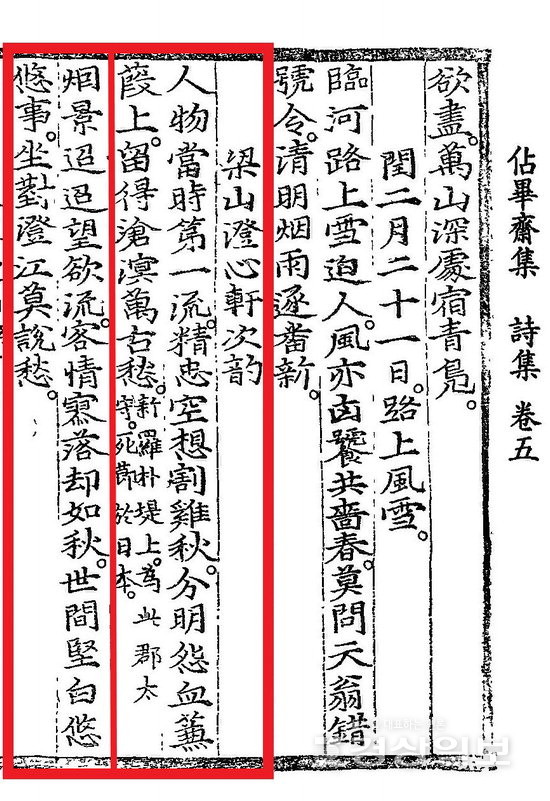 佔畢齋集 詩集 卷五
欲盡。萬山深處宿青鳧。
閏二月二十一日。路上風雪。
臨河路上雪迫人。風亦㐫饕共嗇春。莫問天翁錯
號令。清明烟雨逐番新。
梁山澄心軒次韵
人物當時第一流。精忠空想割雞秋。分明怨血蒹
葭上。留得滄溟萬古愁。新羅朴堤上。爲此郡太
守。死節於日本。
烟景迢迢望欲流。客情寥落却如秋。世間堅白悠
悠事。坐對澄江莫說愁。
경상일보